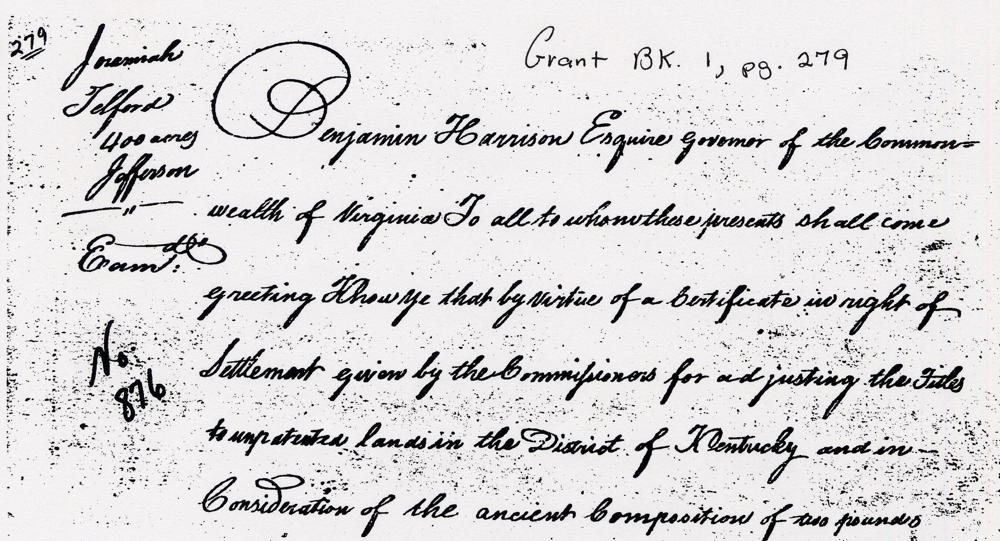 279
Grant BK. 1, pg. 279
Jeremiah
Telford
400 acres
Jefferson
"
Exam.d:
No.
876
Benjamin Harrison Esquire Governor of the Common=
wealth of Virginia To all to whom these presents shall come
greeting Know ye that by virtue of a Certificate in right of
Settlement given by the Commissioners for adjusting the Titles
to unpatented lands in the District of Kentucky and in
Consideration of the ancient Composition of two pounds